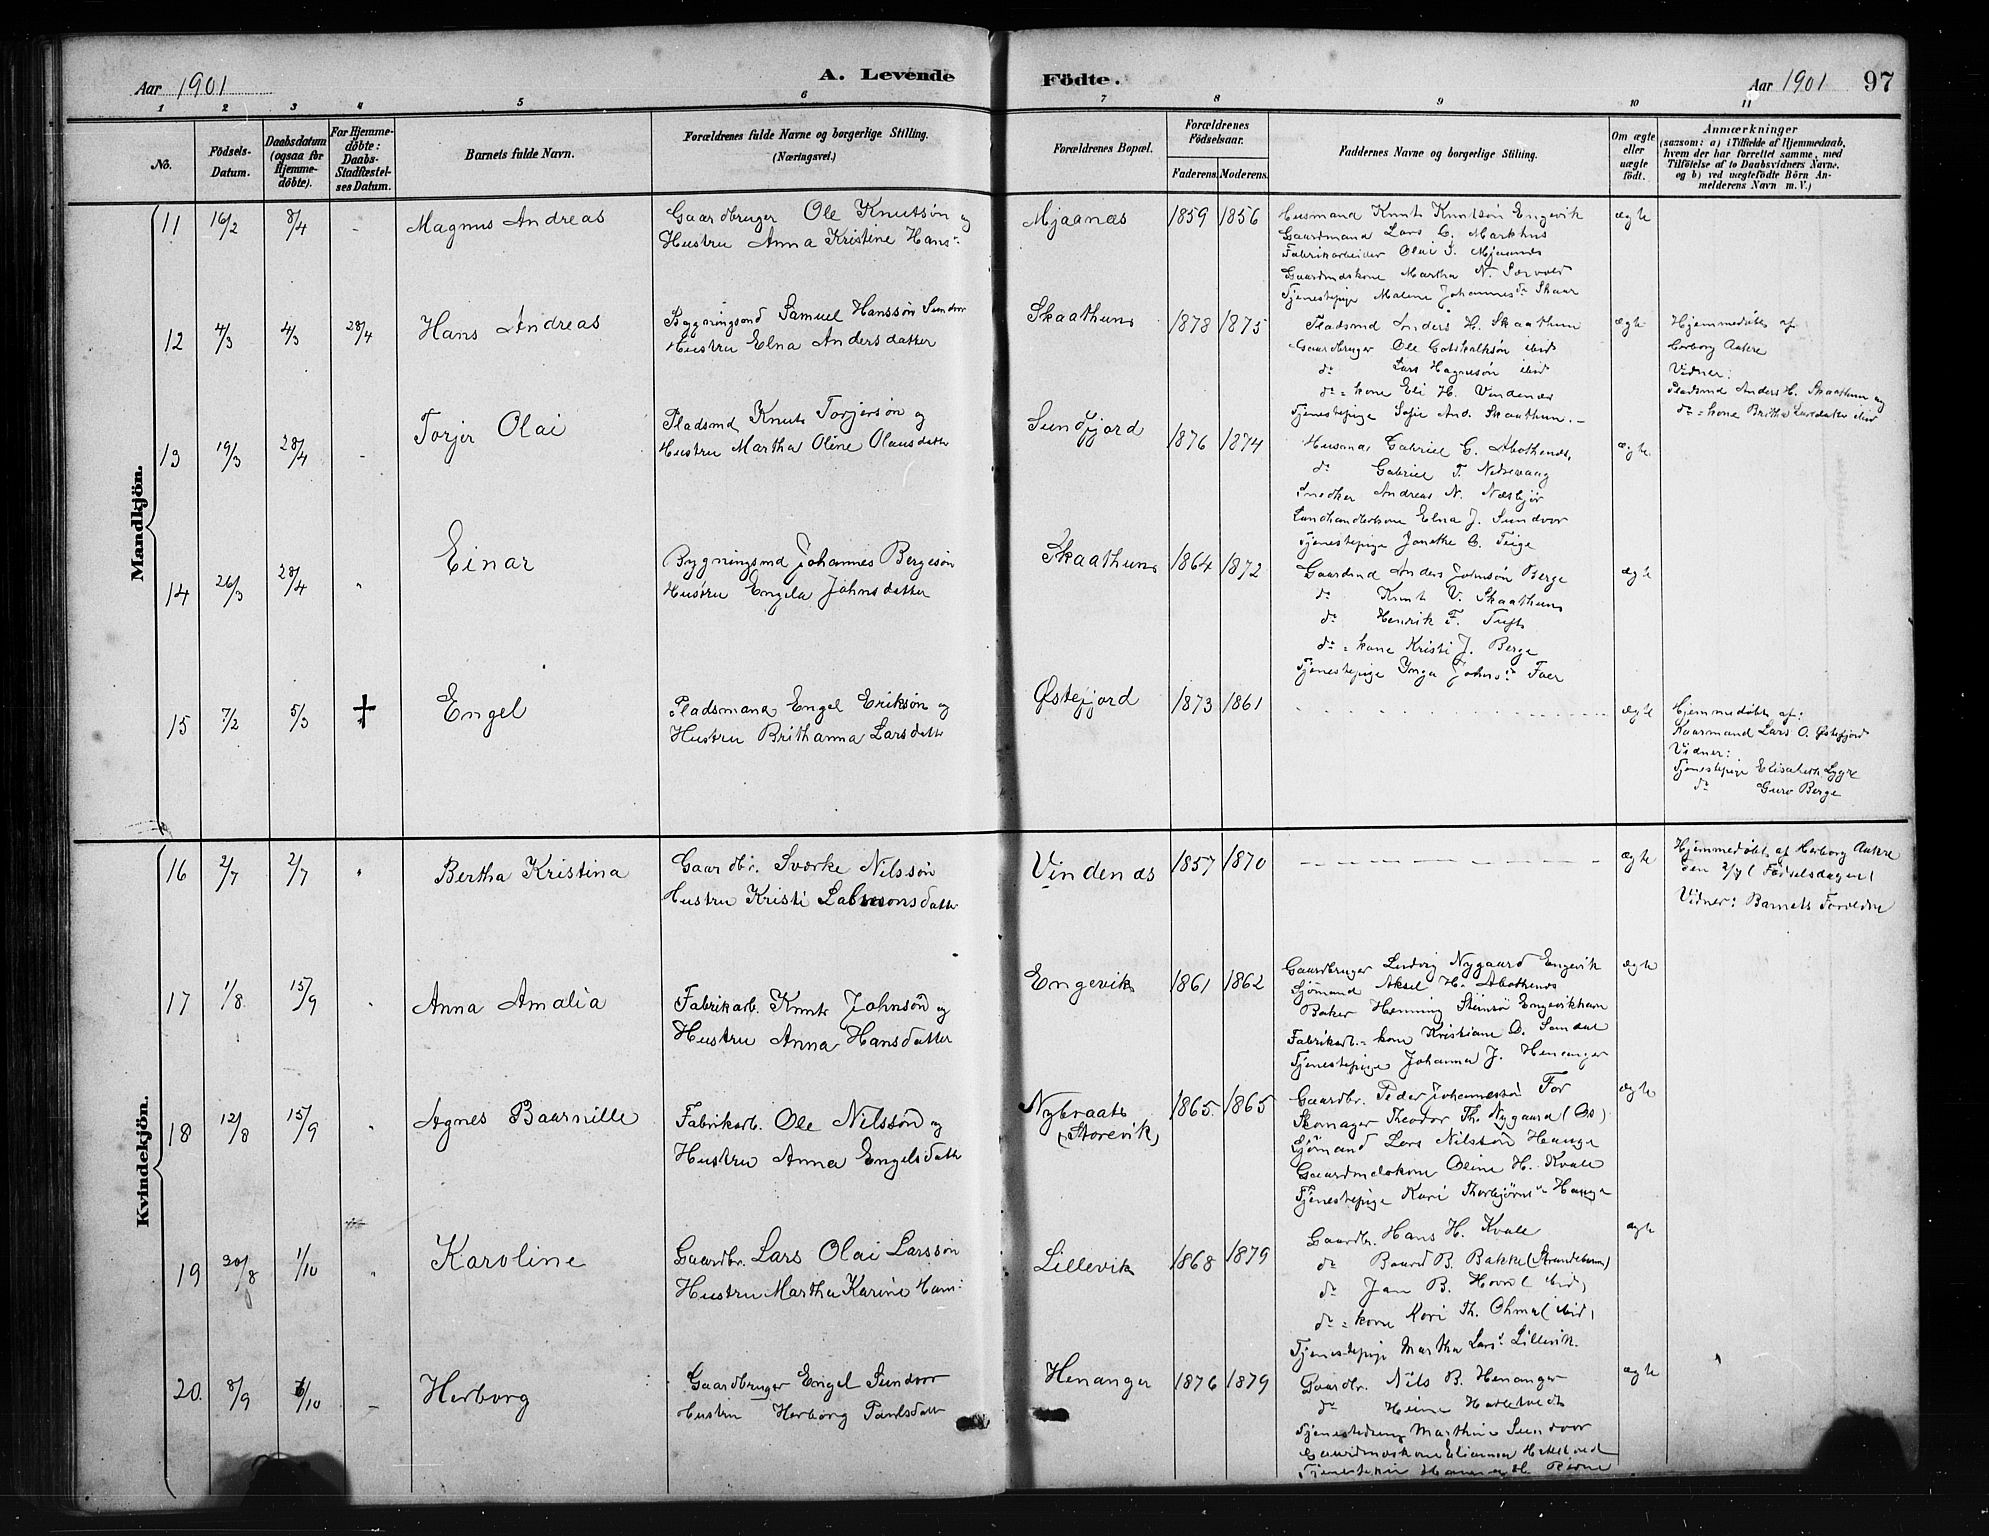 Aar 1901
A. Levende Födte.
Aar 1901 97
1 2 3 4 5 6 7 8 9 10 11
No.
Födsels-Datum.
Daabsdatum (ogsaa for Hjemme-döbte).
For Hjemme-döbte: Daabs-Stadfæstel-ses Datum.
Barnets fulde Navn.
Forældrenes fulde Navne og borgerlige Stilling.
(Næringsvei.)
Forældrenes Bopæl.
Forældrenes Födselsaar.
Faderens. Moderens.
Faddernes Navne og borgerlige Stilling.
Om ægte eller uægte födt.
Anmærkninger
(saasom: a) i Tilfælde af Hjemmedaab, hvem der har forrettet samme, med Tilföielse af to Daabsvidners Navne. og b) ved uægtefödte Börn An-melderens Navn m. V.)
Mandkjön.
11 16/2 8/4 - Magnus Andreas
Gaardbruger Ole Knutsön og
Hustru Anna Kristine Hans-
Mjaanæs 1859 1856
Husmand Knut Knutsön Engevik
Gaardmand Lars C. Markhus
Fabrikarbeider Olai J. Mjaanæs
Gaardmdskone Martha N. Sævold
Tjenestepige Malene Johannesdr Skaar
ægte
12 4/3 4/3 28/4 Hans Andreas
Bygningsmd Samuel Hanssön Sundvor
Hustru Elna Andersdatter
Skaathun 1878 1875
Pladsmd Anders H. Skaathun
Gaardbruger Ole Gotskalksön ibid
dr Lars Hagnesön ibid
dr = kone Eli H. Vindenæs
Tjenestepige Sofie And. Skaathun. -
ægte
Hjemmedøbt af
Herborg Aakre
Vidner:
Pladsmd Anders H. Skaathun og
dr = kone Britha Larsdatter ibid
13 19/3 28/4 - Torjer Olai
Pladsmd Knut Torjersön og
Hustru Martha Oline Olausdatter
Sundfjord 1876 1874
Husmd Gabriel G. Abothsnes
dr Gabriel T. Nedrevaag
Snedker Andreas N. Næsbjør
Landhandlerkone Elna J. Sundvor
Tjenestepige Jonetke C. Teige
ægte
14 26/3 28/4 " Einar
Bygningsmd Johannes Bergesön
Hustru Engela Johnsdatter
Skaathun 1864 1872
Gaardmd Anders Johnsön Berge
dr Knut V. Skaathun
dr Henrik F. Tuft
dr = kone Kristi J. Berge
Tjenestepige Inga Johnsdr Faer
ægte
15 7/2 5/3 † Engel
Pladsmand Engel Eriksön og
Hustru Brithanna Larsdatter
Østefjord 1873 1861
ægte
Hjemmedøbt af:
Kaarmand Lars O. Østefjord
Vidner:
Tjenestepige Elisabeth Lygre
dr Guro Berge
Kvindekjön.
16 2/7 2/7 " Bertha Kristina
Gaardbr. Sværke Nilssön
Hustru Kristi Salmonsdatter
Vindenæs 1857 1870
ægte
Hjemmedøbt af Herborg Aakre
den 2/7 (Fødselsdagen)
Vidner: Barnets Forældre
17 1/8 15/9 " Anna Amalia
Fabrikarb. Knut Johnsön og
Hustru Anna Hansdatter
Engevik 1861 1862
Gaardbruger Ludvig Nygaard Engevik
Sjømand Aksel H. Abothsnes
Baker Henning Steinsö Engevikhavn
Fabrikarb. = kone Kristiane O. Sandal
Tjenestepige Johanna J. Henanger
ægte
18 12/8 15/9 " Agnes Baarnille
Fabrikarb. Ole Nilssön og
Hustru Anna Engelsdatter
Nybraat (Storevik) 1865. 1865
Gaardbr. Peder Johannessön For
Skomager Theodor Th. Nygaard (Os)
Sjømand Lars Nilssön Hauge
Gaardmdskone Oline H. Kvale
Tjenestepige Kari Thorbjørnsdr Hauge
ægte
19 30/8 1/10 " Karoline
Gaardbr. Lars Olai Larssön
Hustru Martha Karine Hans-
Lillevik 1868 1879
Gaardbr. Hans H. Kvale
dr Baard B. Bakke (Strandebarm)
dr Jan B. Hovre (ibid)
dr = kone Kari Th. Ohma (ibid)
Tjenestepige Martha Larsdr Lillevik.
ægte
20. 8/9 6/10 - Herborg
Gaardbruger Engel Sundvor
Hustru Herborg Paulsdatter
Henanger 1876 1879
Gaardbr. Nils B. Henanger
dr Heine Hatletvedt
Tjenestedreng Marthin Sundvor
Gaardmdskone Elianna Hatletvedt
Tjenestepige
ægte